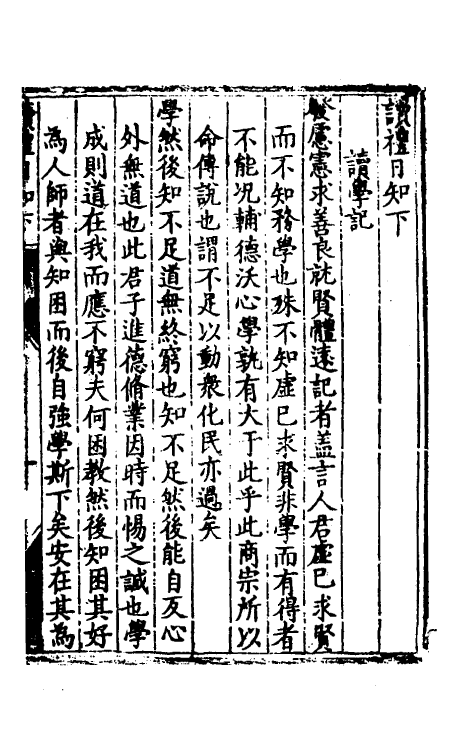 讀禮日知下
讀學記
發慮憲求善良就賢體遠記者盖言人君虛已求賢
而不知務學也殊不知虛已求賢非學而有得者
不能况輔德沃心學孰有大于此乎此商宗所以
命傅說也謂不足以動衆化民亦過矣
學然後知不足道無終窮也知不足然後能自反心
外無道也此君子進德脩業因時而惕之誠也學
成則道在我而應不窮夫何困教然後知困其好
為人師者與知困而後自強學斯下矣安在其為